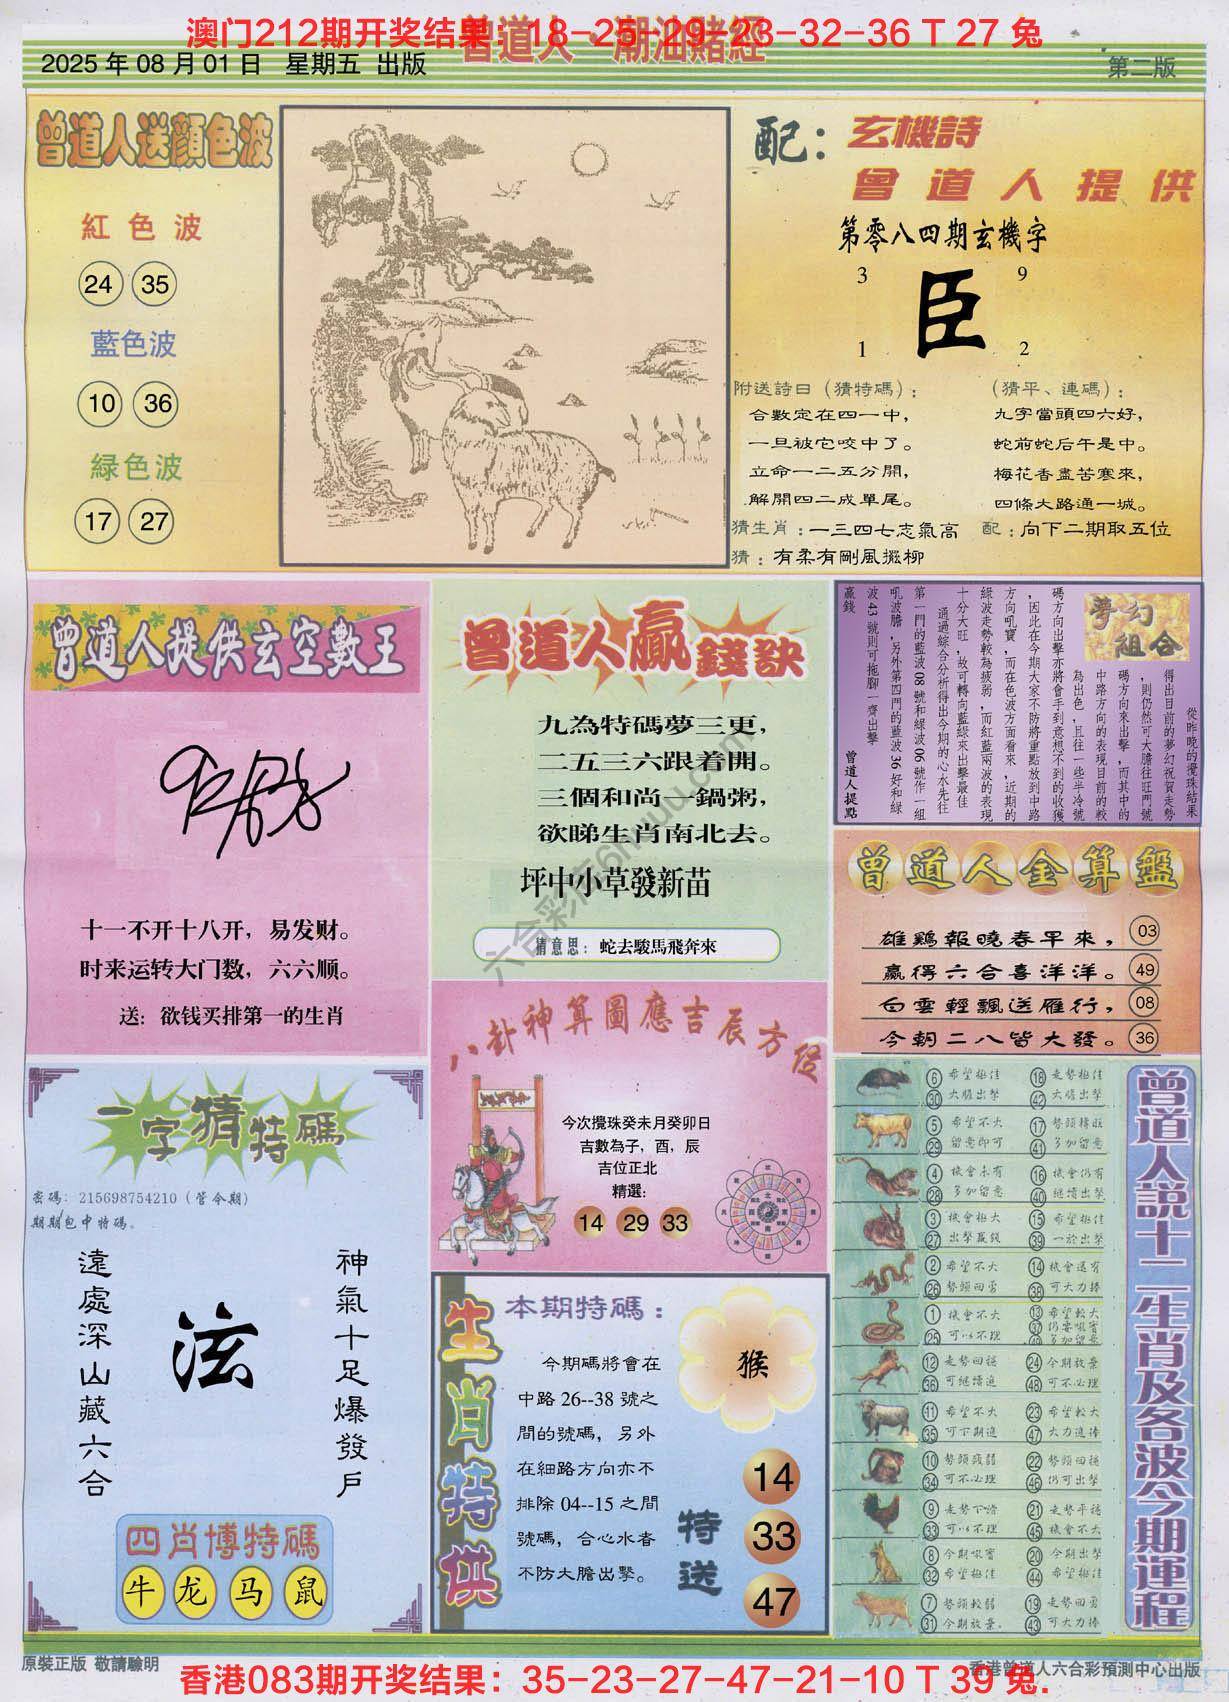 澳门212期开奖结果：18-25-29-23-32-36 T 27 兔
曾道人 潮汕賭經
2025 年 08 月 01 日 星期五 出版
第二版
曾道人送顏色波
紅色波
24 35
藍色波
10 36
緑色波
17 27
配：玄機詩
曾道人提供
第零八四期玄機字
3 9
臣
1 2
附送詩曰（猜特碼）：
合數定在四一中，
一旦被它咬中了。
立命一二五分開，
解開四二成單尾。
（猜平、連碼）：
九字當頭四六好，
蛇前蛇后午是中。
梅花香盡苦寒來，
四條大路通一城。
猜生肖：一三四七志氣高
配：向下二期取五位
猜：有柔有剛風擺柳
曾道人提供玄空數王
十一不开十八开，易发财。
时来运转大门数，六六顺。
送：欲钱买排第一的生肖
曾道人贏錢訣
九為特碼夢三更，
二五三六跟着開。
三個和尚一鍋粥，
欲睇生肖南北去。
坪中小草發新苗
猜意思：蛇去駿馬飛奔來
夢幻組合
從昨晚的攪珠結果
得出目前的夢幻祝賀走勢
，則仍然可大膽往旺門號
碼方向來出擊，而其中的
中路方向的表現目前的較
為出色，且往一些半冷號
碼方向出擊亦將會手到意想不到的收獲
，因此在今期大家不防將重點放到中路
方向吼寶，而在色波方面看來，近期的
綠波走勢較為疲弱，而紅藍兩波的表現
十分大旺，故可轉向藍綠來出擊最佳
通過綜合分析得出今期的心水先往
第一門的藍波 08 號和綠波 06 號作一組
吼波膽，另外第四門的藍波 36 好和綠
波 43 號則可拖腳一齊出擊
贏錢
曾道人提點
曾道人金算盤
雄鷄報曉春早來， 03
贏得六合喜洋洋。 49
白雲輕飄送雁行， 08
今朝二八皆大發。 36
八卦神算圖應吉辰方位
今次攪珠癸未月癸卯日
吉數為子，酉，辰
吉位正北
精選:
14 29 33
一字猜特碼
密碼：215698754210（管今期）
期期包中特碼。
神氣十足爆發戶
泫
遠處深山藏六合
四肖博特碼
牛 龙 马 鼠
生肖特供
本期特碼：
今期碼將會在
中路 26--38 號之
間的號碼，另外
在細路方向亦不
排除 04--15 之間
號碼，合心水者
不防大膽出擊。
猴
特送
14
33
47
曾道人説十二生肖及各波今期運程
6 希望極佳 18 走勢極佳
30 大膽出擊 42 大膽出擊
5 希望不大 17 勢頭轉旺
29 留意即可 41 多加留意
4 機會未有 16 機會仍有
28 多加留意 40 繼續出擊
3 機會極大 15 希望極佳
27 出擊贏錢 39 一於出擊
2 希望不大 14 機會還有
26 勢頭回勇 38 可大力捧
1 機會不大 13 希望較大
25 可以不理 37 仍要吸實
49 多加留意
12 走勢回穩 24 今期放棄
36 可繼續追 48 可不必理
11 希望不大 23 希望較大
35 可下期追 47 大力追捧
10 勢頭疲弱 22 勢頭回穩
34 可不必理 46 仍可出擊
9 走勢下滑 21 走勢平穩
33 可以不理 45 機會不大
8 今期吸實 20 今期出擊
32 希望極佳 44 希望極佳
7 勢頭較弱 19 走勢回勇
31 今期放棄. 43 可大力捧
六合彩库6huuu.com
原裝正版 敬請驗明
香港曾道人六合彩預測中心出版
香港083期开奖结果：35-23-27-47-21-10 T 39 兔.